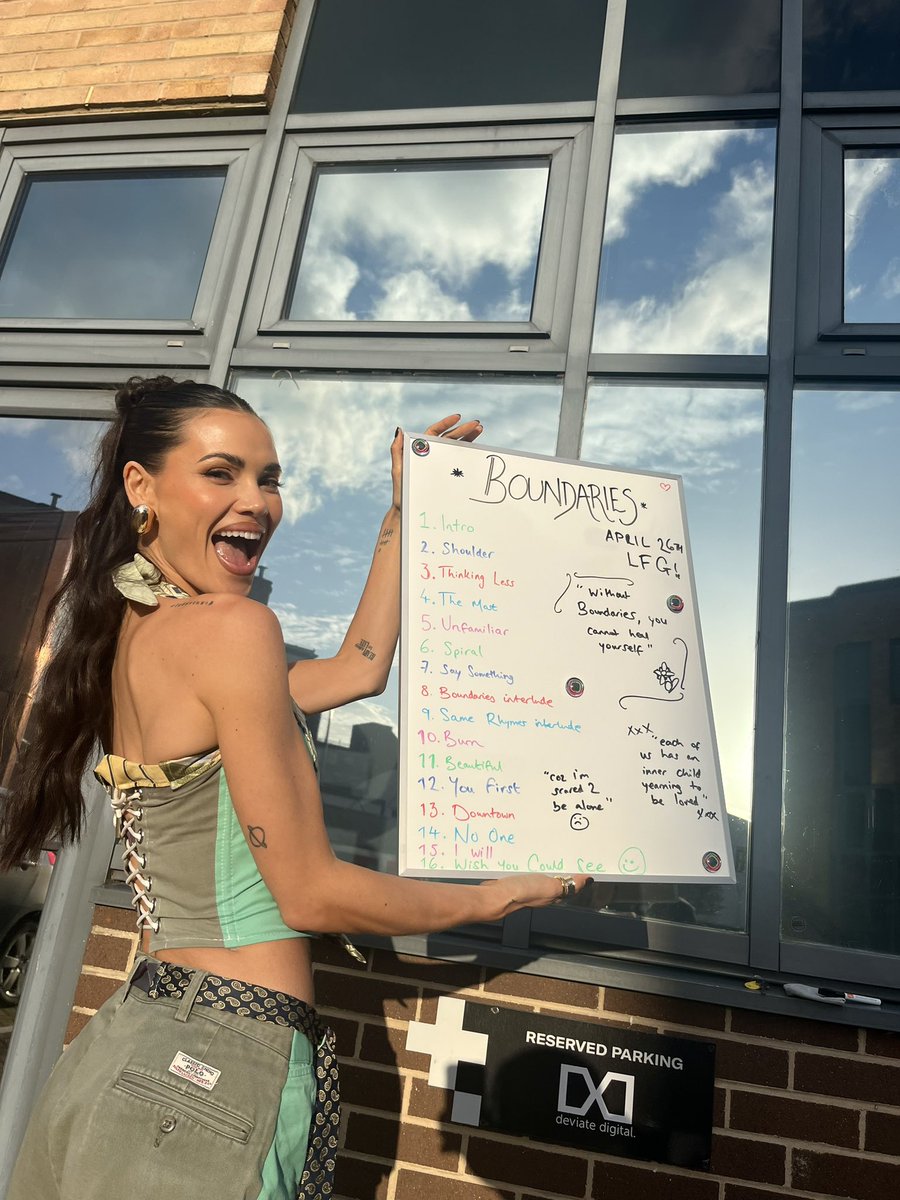 BOUNDARIES
1. Intro
2. Shoulder
3. Thinking Less
4. The Most
5. Unfamiliar
6. Spiral
7. Say Something
8. Boundaries interlude
9. Same Rhymes interlude
10. Burn
11. Beautiful
12. You First
13. Downtown
14. No One
15. I will
16. Wish You Could See
APRIL 26TH
LFG!
"Without
Boundaries, you
cannot heal
yourself"
"coz i'm
scared 2
be alone"
xxx "each of
us has an
inner child
yearning to
be loved"
xxx
POLO
RESERVED PARKING
deviate digital.